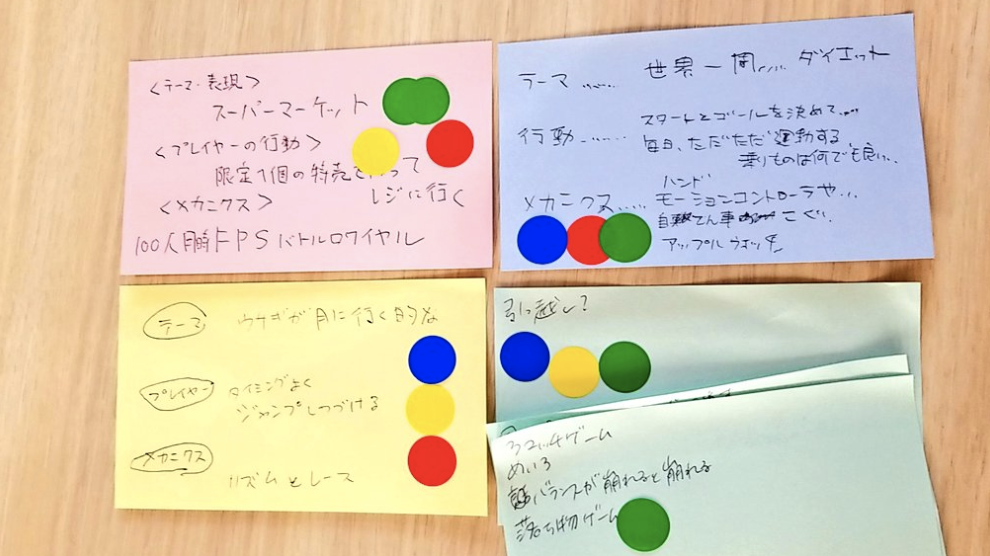 〈テーマ・表現〉
スーパーマーケット
〈プレイヤーの行動〉
限定1個の特売を って
レジに行く
〈メカニクス〉
100人同時FPSバトルロワイヤル
テーマ……
世界一周…… ダイエット
行動………
スタートとゴールを決めて……
毎日、ただただ運動する
乗りものは何でも良い…
メカニクス……
ハンド
モーションコントローラや…
自 てん車 こぐ…
アップルウォッチ
テーマ
ウサギが月に行く的な
プレイヤー
タイミングよく
ジャンプしつづける
メカニクス
リズムとレース
引っ越し?
3マッチゲーム
めいろ
バランスが崩れると崩れる
落ち物ゲーム